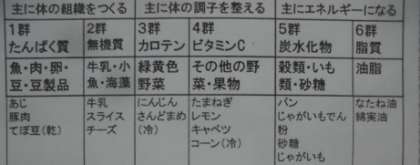 主に体の組織をつくる 主に体の調子を整える 主にエネルギーになる
1群 2群 3群 4群 5群 6群
たんぱく質 無機質 カロテン ビタミンC 炭水化物 脂質
魚・肉・卵・ 牛乳・小 緑黄色 その他の野 穀類・いも 油脂
豆・豆製品 魚・海藻 野菜 菜・果物 類・砂糖
あじ 牛乳 にんじん たまねぎ パン なたね油
豚肉 スライス さんどまめ レモン じゃがいもでん 綿実油
てぼ豆(乾) チーズ (冷) キャベツ 粉
コーン(冷) 砂糖
じゃがいも